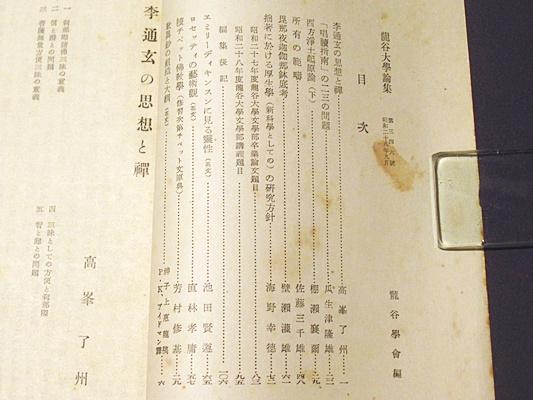 龍谷大學論集 第三四六號
昭和二十八年九月
目次
龍谷學會編
李通玄の思想と禪 高峯了州 一
「唱讀指南」の二三の問題 瓜生津隆雄
西方淨土起原論(下) 棚瀬襄爾
所有の範疇 佐藤三千雄 四八
毘那夜迦伽那鉢底考 壁瀬灌雄 六一
拙著に於ける厚生學(新科學としての)の研究方針 海野幸德
昭和二十七年度龍谷大學文學部卒業論文題目
昭和二十八年度龍谷大學文學部講義題目 九五
編集後記 一〇六
エミリーディキンスンに見る靈性(英文) 池田賢遵
ロセッティの藝術觀(英文) 直林孝庸
梵チベット佛敎學(修習次第チベット文原典) 芳村修基
李通玄の思想と禪
高峯了州
四 三昧としての方便と刹那際
五 智と願との問題